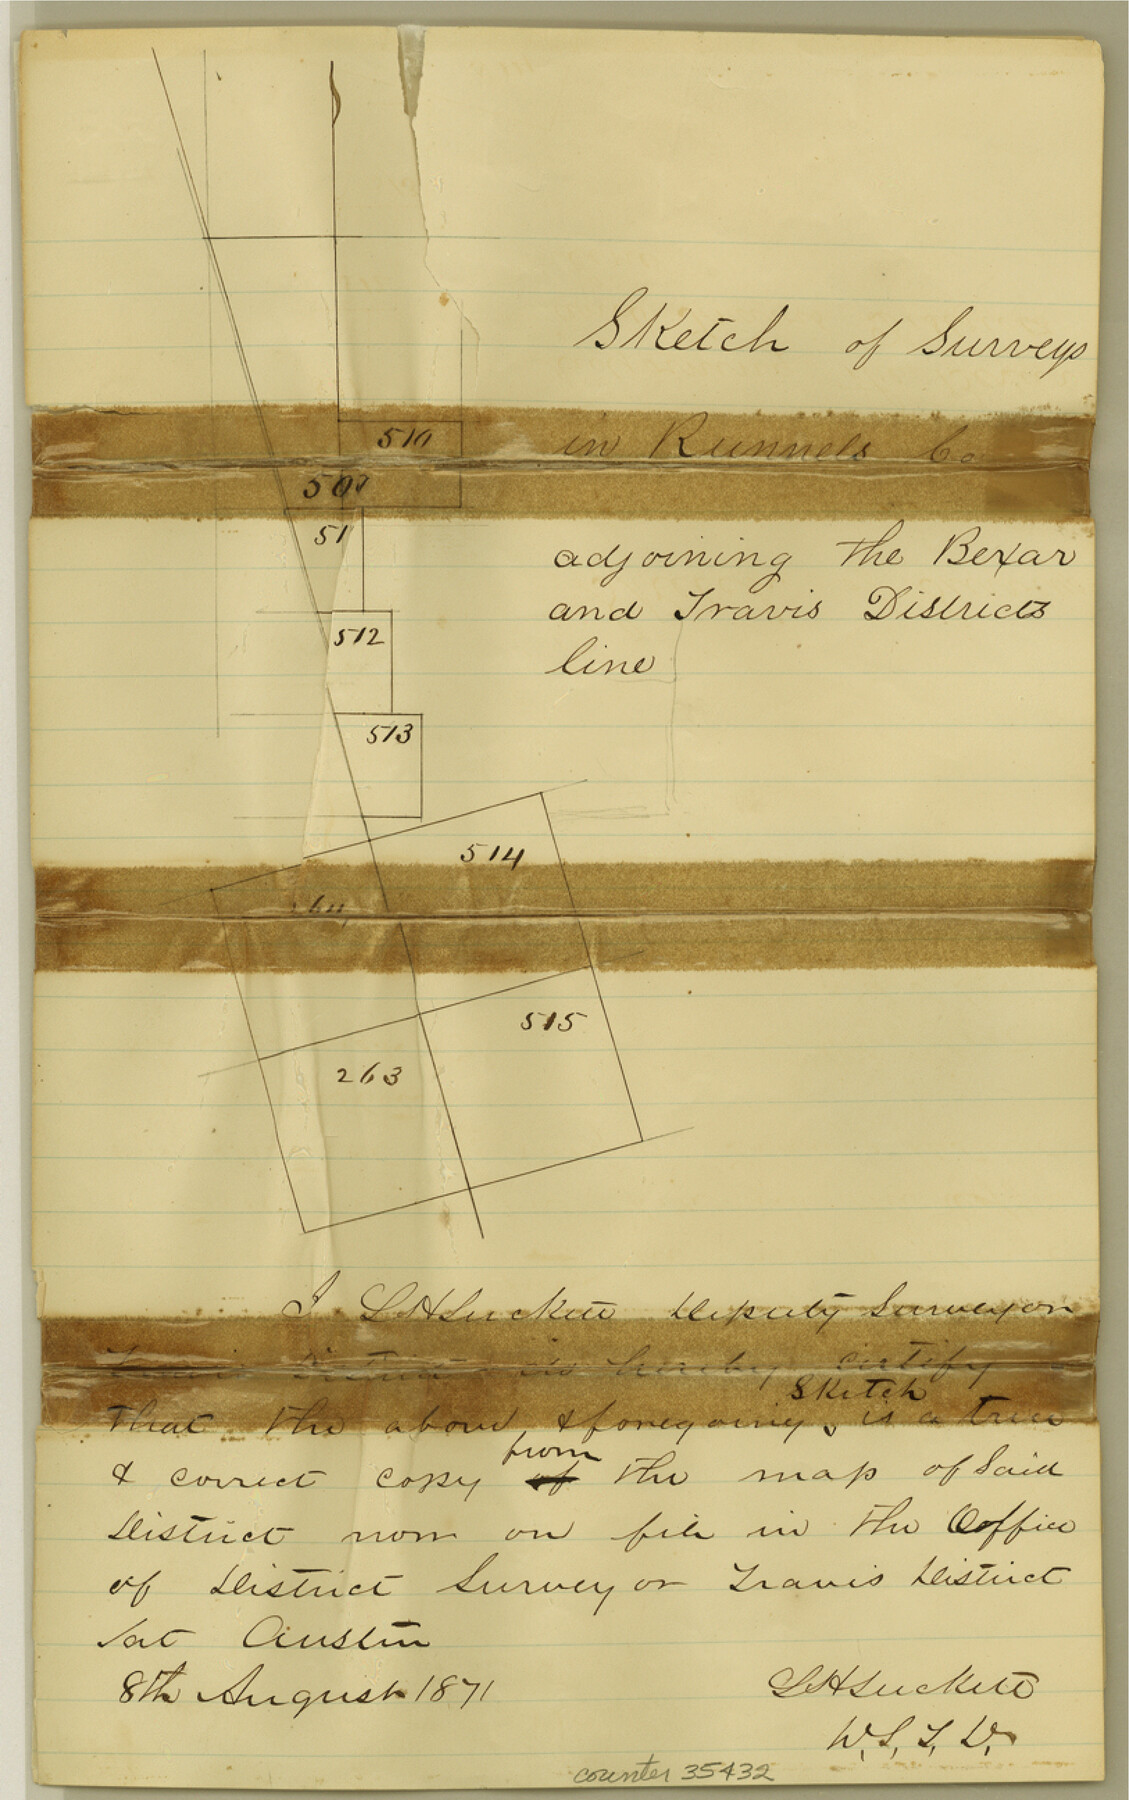 Sketch of Surveys
510
in Runnels Co
509
51
adjoining the Bexar
and Travis Districts
512
line
513
514
515
263
I LHLuckett Deputy Surveyor
Travis District do hereby certify
Sketch
that the above & foregoing ‸ is a true
from
& correct copy of the map of Said
District now on file in the Office
of District Surveyor Travis District
at Austin
8th August 1871
LHLuckett
counter 35432